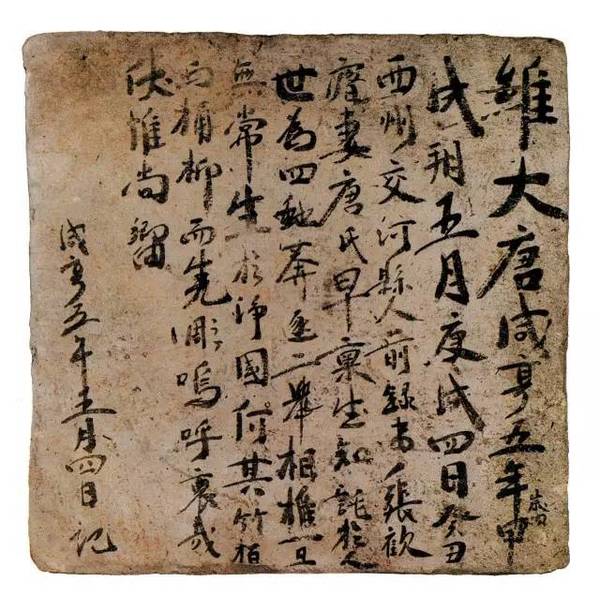 維大唐咸亨五年歲次甲
戌朔五月庚戌四日癸丑
西州交河縣人前錄事張歡
妻唐氏早禀生知託於人
世為四虵莽逐二舉相摧一旦
無常生於浄國何其竹栢
而桶柳而先凋嗚呼哀哉
伏惟尚饗
咸亨五年五月四日記